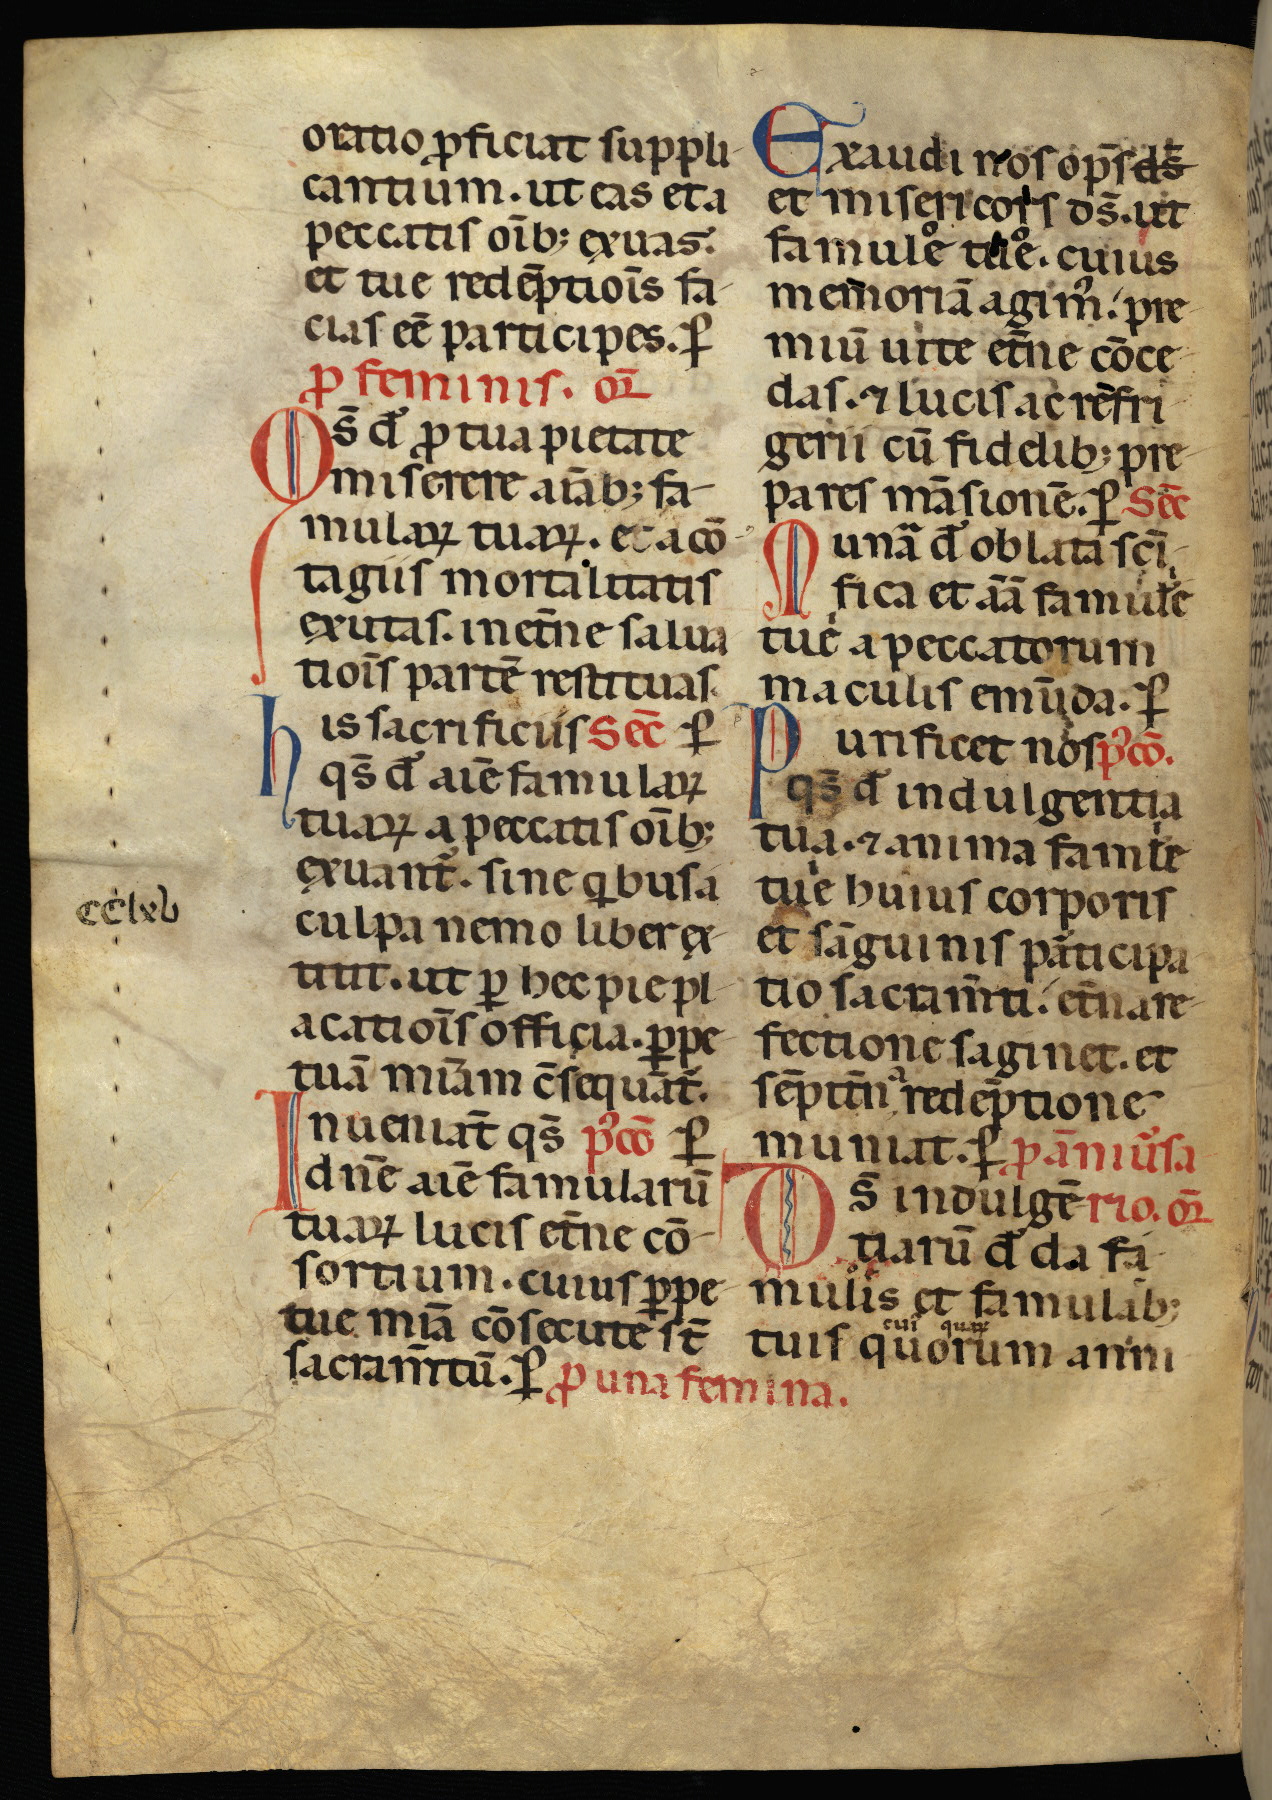 oratio ꝓficiat suppli
cantium. ut eas et a
peccatis oīb; exuas.
et tue redēptiōis fa
cias eē participes. ꝑ
ꝓ feminis. or̄
Ds̄ qs̄ ꝓ tua pietate
miserere aīab; fa
mulaꝝ tuaꝝ. et a cō
tagiis mortalitatis
exutas. in et̄ne salua
tiōis partē restituas.
his sacrificiis Sec̄ ꝑ
qs̄ dn̄e aīe famulaꝝ
tuaꝝ a peccatis oīb;
exuant᷑. sine qͥbus a
culpa nemo liber ex
titit. ut ꝑ hec pie pl
acatiōis officia. ꝑpe
tuā mīam c̄sequāt᷑.
Inueniāt qs̄ pꝰcō ꝑ
dn̄e aīe famularū
tuaꝝ lucis et̄ne cō
sortium. cuius ꝑpe
tue mīa cōsecute st̄
sacram̄tū. ꝑ ꝓ una femina.
cclxv
Exaudi nos op̄s ds̄
et misericors ds̄. ut
famule tue. cuius
memoriā agimꝰ. pre
miū uite et̄ne cōce
das. ⁊ lucis ac refri
gerii cū fidelib; pre
pares māsionē. ꝑ Sec̄
Munā dn̄e oblata scī
fica et aīā famule
tue a peccatorum
maculis emūda. ꝑ
Purificet nos pꝰcō.
qs̄ dn̄e indulgentia
tua. ⁊ anima famle
tue huius corporis
et sāguinis pāticipa
tio sacram̄ti. et̄na re
fectione saginet. et
sēpit̄na redēptione
muniat. ꝑ ꝓ āniu᷑sa
Ds̄ indulgē rio. or̄
tiarū dn̄e da fa
mulis et famulab;
cui quaꝝ
tuis quorum anni